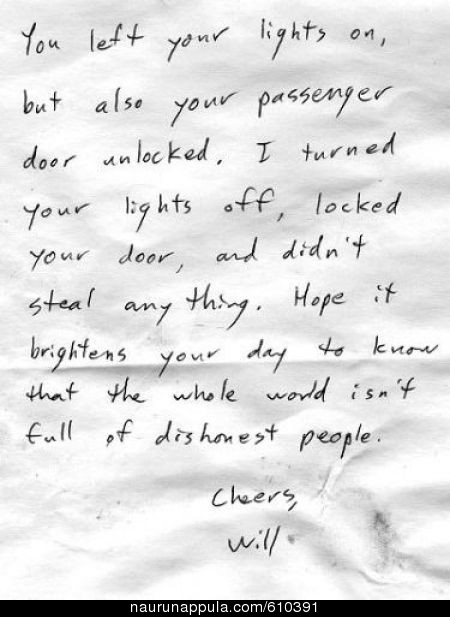 You left your lights on,
but also your passenger
door unlocked. I turned
your lights off, locked
your door, and didn't
steal anything. Hope it
brightens your day to know
that the whole world isn't
full of dishonest people.
Cheers,
Will
naurunappula.com/610391